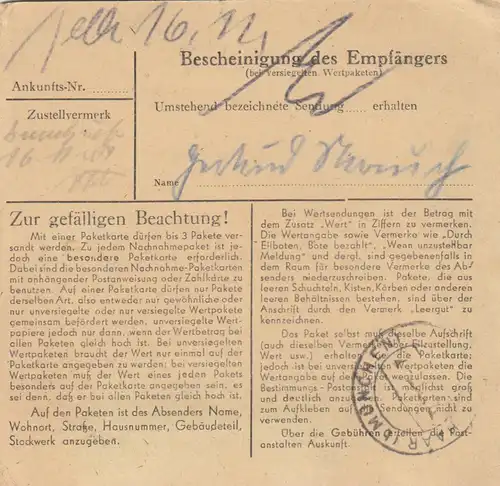 16. 11.
Bescheinigung des Empfängers
(bei versiegelten Wertpaketen)
Ankunfts-Nr.
Umstehend bezeichnete Sendung erhalten
Zustellvermerk
16 11
Name Gertrud
Zur gefälligen Beachtung!
Mit einer Paketkarte dürfen bis 3 Pakete ver-
sandt werden. Zu jedem Nachnahmepaket ist je-
doch eine besondere Paketkarte erforderlich.
Dabei sind die besonderen Nachnahme-Paketkarten
mit anhängender Postanweisung oder Zahlkarte zu
benutzen. Auf einer Paketkarte dürfen nur Pakete
derselben Art, also entweder nur gewöhnliche oder
nur unversiegelte oder nur versiegelte Wertpakete
gemeinsam befördert werden, unversiegelte Wert-
papiere jedoch nur dann, wenn der Wertbetrag bei
allen Paketen gleich hoch ist. Bei unversiegelten
Wertpaketen braucht der Wert nur einmal auf der
Paketkarte angegeben zu werden; bei versiegelten
Wertpaketen muß der Wert eines jeden Pakets
besonders auf der Paketkarte angegeben sein, es
sei denn, daß er bei allen Paketen gleich hoch ist.
Auf den Paketen ist des Absenders Name,
Wohnort, Straße, Hausnummer, Gebäudeteil,
Stockwerk anzugeben.
Bei Wertsendungen ist der Betrag mit
dem Zusatz „Wert" in Ziffern zu vermerken.
Die Wertangabe sowie Vermerke wie „Durch
Eilboten, Bote bezahlt", „Wenn unzustellbar
Meldung" und dergl. sind gegebenenfalls in
dem Raum für besondere Vermerke des Ab-
senders niederzuschreiben. Pakete, die aus
leeren Schachteln, Kisten, Körben oder anderen
leeren Behältnissen bestehen, sind über der
Anschrift durch den Vermerk „Leergut" zu
kennzeichnen.
Das Paket selbst muß dieselbe Aufschrift
(auch dieselben Vermerke über Eilzustellung,
Wert usw.) erhalten wie die Paketkarte;
jedoch ist bei unversiegelten Wertpaketen die
Wertangabe auf dem Paket wegzulassen. Die
Bestimmungs-Postanstalt ist möglichst groß
und deutlich anzugeben. Paketkarten sind
zum Aufkleben auf die Sendungen nicht zu
verwenden.
Über die Gebühren erteilen die Post-
anstalten Auskunft.
HAAR (MÜNCHEN)